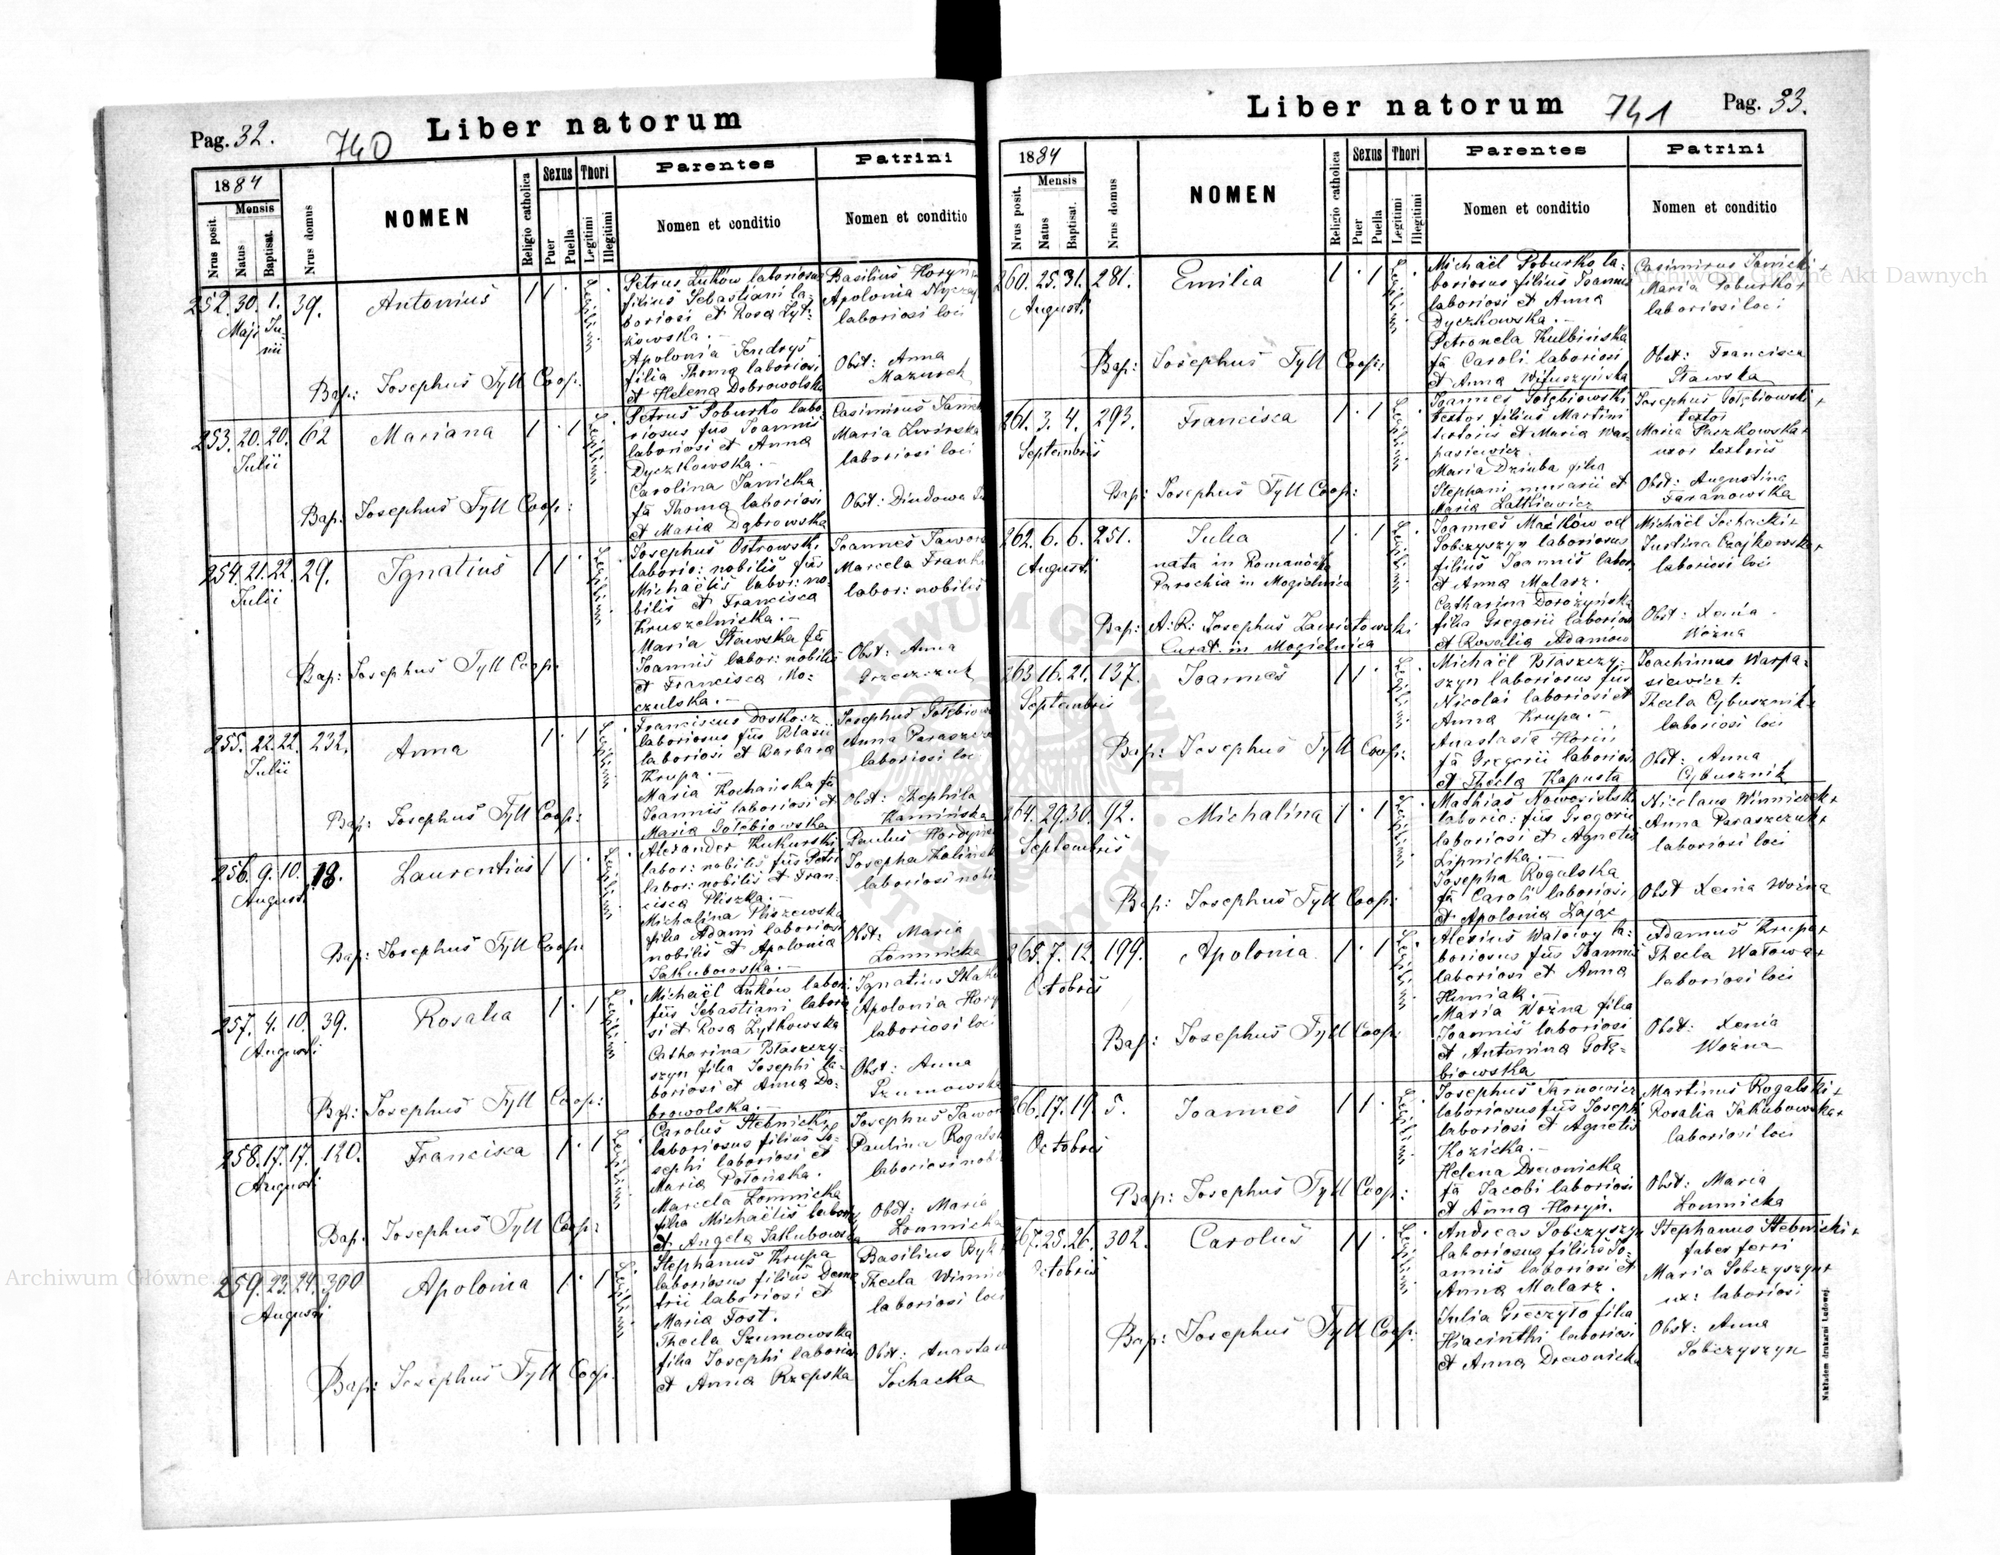 Pag. 32.
740
Liber natorum
1884
Mensis
Nrus posit.
Natus
Baptisat.
Nrus domus
NOMEN
Religio catholica
Sexus
Puer
Puella
Thori
Legitimi
Illegitimi
Parentes
Nomen et conditio
Patrini
Nomen et conditio
252. 30. 1. 39. Antonius 1 1
Maji Junii
Legitimi
Petrus Luków laboriosus
filius Sebastiani la-
boriosi et Rosa Żyt-
kowska.—
Apolonia Jendryś
filia Thoma laboriosi
et Helena Dobrowolska
Basilius Horyń
Apolonia
laboriosi loci
Obst: Anna
Mazurek
Bap: Josephus Tyll Coop:
253. 20. 20. 62 Mariana 1 1
Julii
Legitimi
Petrus Poburko labo
riosus fus Joannis
laboriosi et Anna
Dyczkowska.—
Carolina Janicka
fa Thoma laboriosi
et Maria Dąbrowska
Casimirus
Maria Zwirska
laboriosi loci
Obst: Dindowa
Bap: Josephus Tyll Coop:
254. 21. 22. 29. Ignatius 1 1
Julii
Legitimi
Josephus Ostrowski
laborio: nobilis fus
Michaëlis labor: no-
bilis et Francisca
Kruszelniska.—
Maria Stawska fa
Joannis labor: nobilis
et Francisca Mo-
czulska.—
Joannes
Marcela
labor: nobilis
Obst: Anna
Grzeszczuk
Bap: Josephus Tyll Coop:
255. 22. 22. 232. Anna 1 1
Julii
Legitimi
Franciscus Doskocz
laboriosus fus Blasii
laboriosi et Barbara
Krupa.—
Maria Kochańska fa
Joannis laboriosi et
Maria Gołębiowska
Josephus
Anna
laboriosi loci
Obst: Thephila
Kamińska
Bap: Josephus Tyll Coop:
256. 9. 10. 18. Laurentius 1 1
Augusti
Legitimi
Alexander Kukurski
labor: nobilis fus Petri
labor: nobilis et Fran-
cisca Pliszka.—
Michalina Pliszewska
filia Adami laboriosi
nobilis et Apolonia
Jakubowska.—
Paulus
Josepha
laboriosi
Obst: Maria
Łomnicka
Bap: Josephus Tyll Coop:
257. 4. 10. 39. Rosalia 1 1
Augusti
Legitimi
Michaël Luków labor:
fus Sebastiani laborio
si et Rosa Żytkowska
Catharina Błaszczy-
szyn filia Josephi la-
boriosi et Anna Do-
browolska.—
Ignatius
Apolonia
laboriosi loci
Obst: Anna
Szumowska
Bap: Josephus Tyll Coop:
258. 17. 17. 120. Francisca 1 1
Augusti
Legitimi
Carolus Stebnicki
laboriosus filius Jo-
sephi laboriosi et
Maria Połońska.
Marcela Łomnicka
filia Michaëlis labor:
et Angela Jakubowska
Josephus
Paulina
laboriosi
Obst: Maria
Łomnicka
Bap: Josephus Tyll Coop:
259. 23. 24. 300 Apolonia 1 1
Augusti
Legitimi
Stephanus Krupa
laboriosus filius Deme
trii laboriosi et
Maria Fost.
Thecla Szumowska
filia Josephi laboriosi
et Anna Rzepska
Basilius
Thecla
laboriosi loci
Obst:
Sochacka
Bap: Josephus Tyll Coop:
Liber natorum
741
Pag. 33.
1884
Mensis
Nrus posit.
Natus
Baptisat.
Nrus domus
NOMEN
Religio catholica
Sexus
Puer
Puella
Thori
Legitimi
Illegitimi
Parentes
Nomen et conditio
Patrini
Nomen et conditio
260. 25. 31. 281. Emilia 1 1
Augusti
Legitimi
Michaël Poburko la-
boriosus filius Joannis
laboriosi et Anna
Dyczkowska.—
Petronela Kulbińska
fa Caroli laboriosi
et Anna
Casimirus Janicki +
Maria Poburko +
laboriosi loci
Obst: Francisca
Stawska
Bap: Josephus Tyll Coop:
261. 3. 4. 293. Francisca 1 1
Septembris
Legitimi
Joannes Gołębiowski
textor filius Martini
textoris et Maria War-
pasiewicz
Maria Dziuba filia
Stephani murarii et
Maria Latkiewicz
Josephus Gołębiowski +
textor
Maria Paszkowska +
uxor textoris
Obst: Augustina
Taranowska
Bap: Josephus Tyll Coop:
262. 6. 6. 251. Julia 1 1
Augusti
nata in Romanówka
Parochia in Mogielnica
Legitimi
Joannes Maćków vel
Sobczyszyn laboriosus
filius Joannis labor:
et Anna Malarz.
Catharina Dorożyńska
filia Gregorii laboriosi
et Rosalia Adamow
Michaël Sochacki +
Justina Czajkowska +
laboriosi loci
Obst: Xenia
Woźna
Bap: A. R: Josephus Zawistowski
Curat. in Mogielnica
263. 16. 21. 137. Joannes 1 1
Septembris
Legitimi
Michaël Błaszczy-
szyn laboriosus fus
Nicolai laboriosi et
Anna Krupa.—
Anastasia Horin
fa Gregorii laboriosi
et Thecla Kapusta
Joachimus Warpa-
siewicz +
Thecla Cybusznik +
laboriosi loci
Obst: Anna
Cybusznik
Bap: Josephus Tyll Coop:
264. 29. 30. 92. Michalina 1 1
Septembris
Legitimi
Mathias Nowosielski
laborio: fus Gregorii
laboriosi et Agnetis
Lipnicka.—
Josepha Rogalska
fa Caroli laboriosi
et Apolonia Zając
Nicolaus Winniczek +
Anna Paraszczuk +
laboriosi loci
Obst Xenia Woźna
Bap: Josephus Tyll Coop:
265. 7. 12. 199. Apolonia 1 1
Octobris
Legitimi
Alexius Watowy la-
boriosus fus Joannis
laboriosi et Anna
Humiak.—
Maria Woźna filia
Joannis laboriosi
et Antonina Gołę-
biowska
Adamus Krupa +
Thecla Watowa +
laboriosi loci
Obst: Xenia
Woźna
Bap: Josephus Tyll Coop:
266. 17. 19. 5. Joannes 1 1
Octobris
Legitimi
Josephus Tarnowicz
laboriosus fus Josephi
laboriosi et Agnetis
Kozicka.—
Helena Drewnicka
fa Jacobi laboriosi
et Anna Horyń.
Martinus Rogalski +
Rosalia Jakubowska +
laboriosi loci
Obst: Maria
Łomnicka
Bap: Josephus Tyll Coop:
267. 25. 26. 302. Carolus 1 1
Octobris
Legitimi
Andreas Sobczyszyn
laboriosus filius Jo-
annis laboriosi et
Anna Malarz.
Julia Greczyło filia
Hiacinthi laboriosi
et Anna Drewnicka
Stephanus Stebnicki +
faber ferri
Maria Sobczyszyn +
ux: laboriosi
Obst: Anna
Sobczyszyn
Bap: Josephus Tyll Coop:
Nakładem drukarni Ludowej.
Archiwum Główne Akt Dawnych